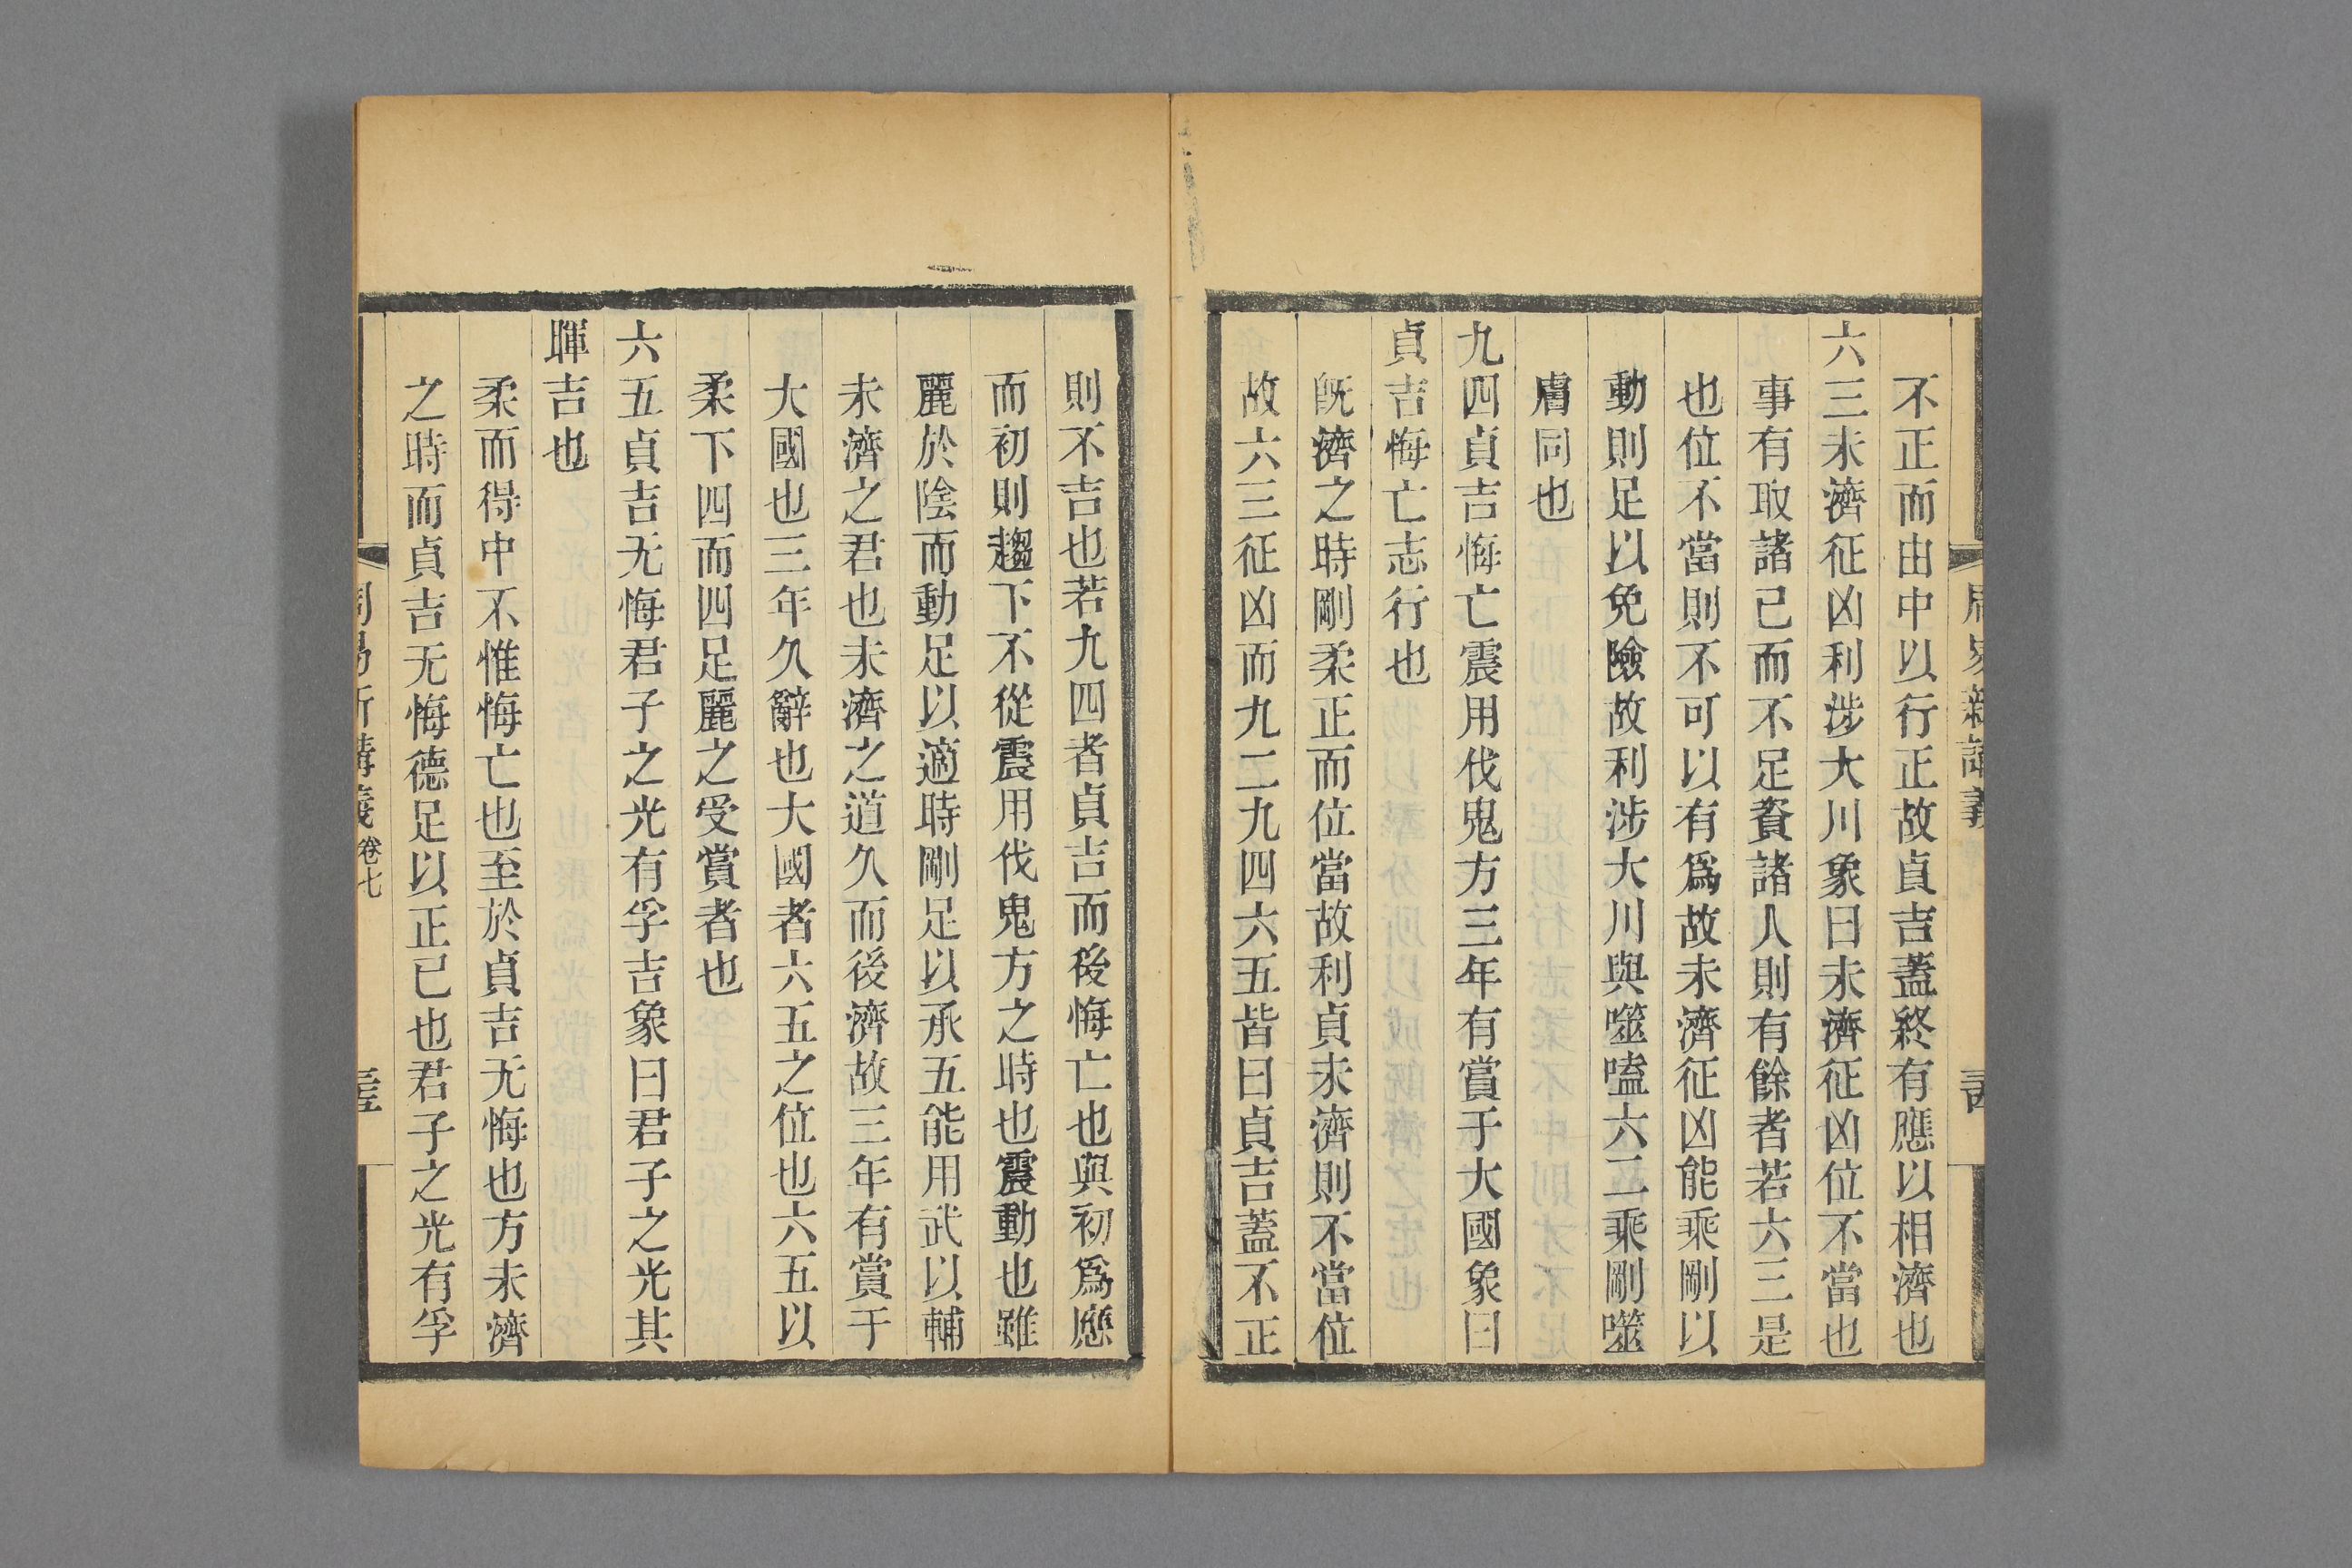 不正而由中以行正故貞吉蓋終有應以相濟也
六三未濟征凶利涉大川象曰未濟征凶位不當也
事有取諸己而不足資諸人則有餘者若六三是
也位不當則不可以有爲故未濟征凶能乘剛以
動則足以免險故利涉大川與噬嗑六二乘剛噬
膚同也
九四貞吉悔亡震用伐鬼方三年有賞于大國象曰
貞吉悔亡志行也
既濟之時剛柔正而位當故利貞未濟則不當位
故六三征凶而九二九四六五皆曰貞吉蓋不正
則不吉也若九四者貞吉而後悔亡也與初爲應
而初則趨下不從震用伐鬼方之時也震動也雖
麗於陰而動足以適時剛足以承五能用武以輔
未濟之君也未濟之道久而後濟故三年有賞于
大國也三年久辭也大國者六五之位也六五以
柔下四而四足麗之受賞者也
六五貞吉无悔君子之光有孚吉象曰君子之光其
暉吉也
柔而得中不惟悔亡也至於貞吉无悔也方未濟
之時而貞吉无悔德足以正己也君子之光有孚
周易新講義 卷七